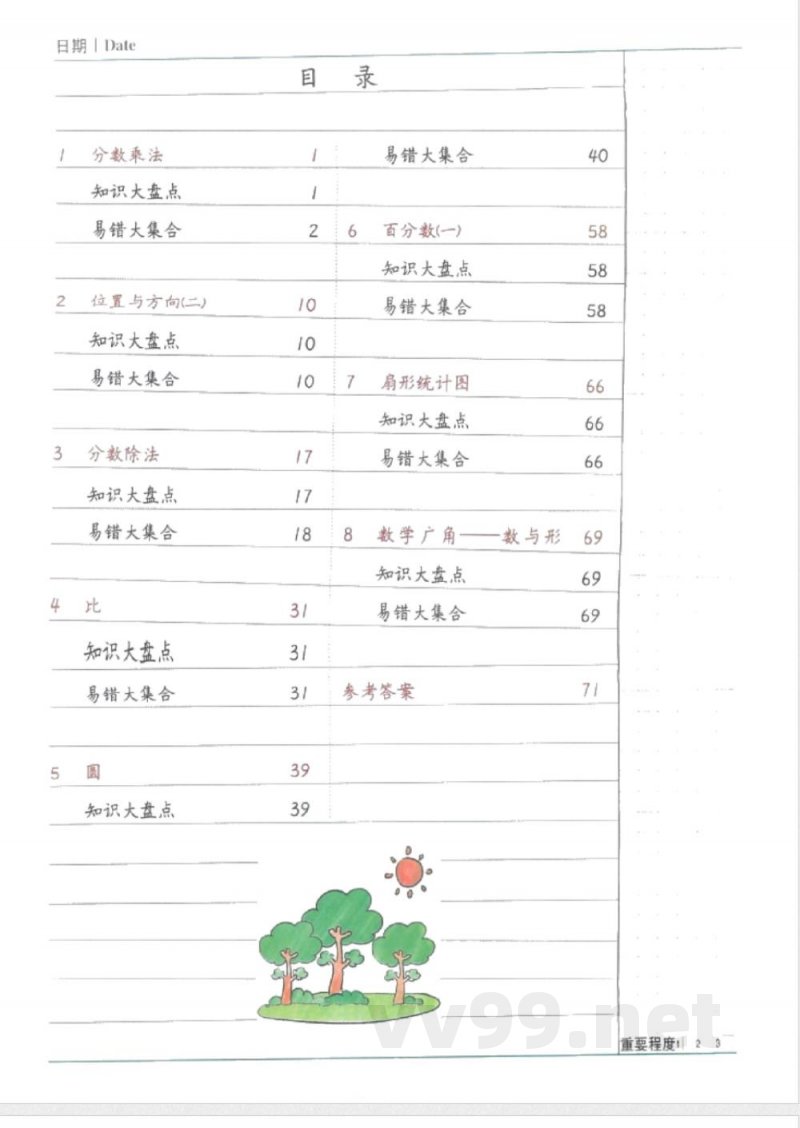 日期 | Date
目 录
1 分数乘法 1
知识大盘点 1
易错大集合 2
2 位置与方向(二) 10
知识大盘点 10
易错大集合 10
3 分数除法 17
知识大盘点 17
易错大集合 18
4 比 31
知识大盘点 31
易错大集合 31
5 圆 39
知识大盘点 39
易错大集合 40
6 百分数(一) 58
知识大盘点 58
易错大集合 58
7 扇形统计图 66
知识大盘点 66
易错大集合 66
8 数学广角——数与形 69
知识大盘点 69
易错大集合 69
参考答案 71
vv99.net
重要程度 1 2 3